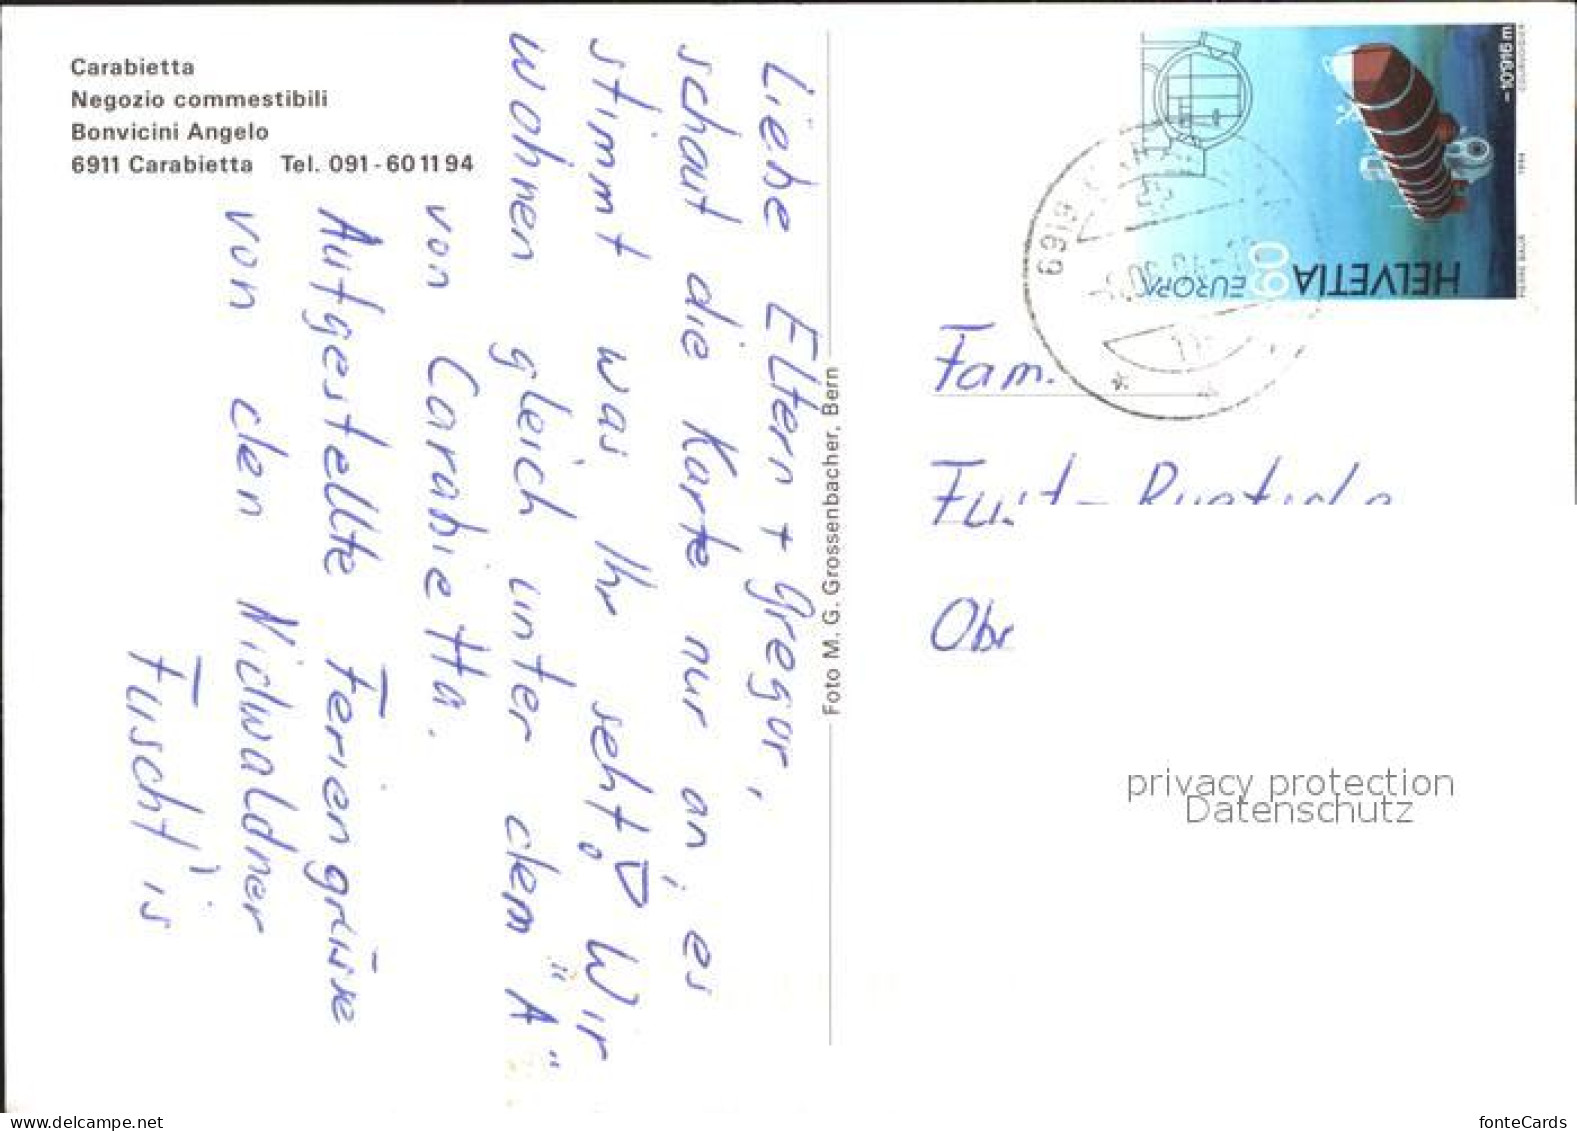 Carabietta
Negozio commestibili
Bonvicini Angelo
6911 Carabietta Tel. 091 - 60 11 94
Liebe Eltern + Gregor,
schaut die Karte nur an, es
stimmt was Ihr seht! Wir
wohnen gleich unter dem "A"
von Carabietta.
Aufgestellte Feriengrüsse
von den Nidwaldner
Fuscht'is
Foto M. G. Grossenbacher, Bern
HELVETIA
60
EUROPA
-10916 m
1994
6919
Fam.
privacy protection
Datenschutz
fonteCards